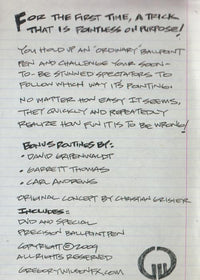 FOR THE FIRST TIME, A TRICK
THAT IS POINTLESS ON PURPOSE!
YOU HOLD UP AN 'ORDINARY' BALLPOINT
PEN AND CHALLENGE YOUR SOON-
TO-BE STUNNED SPECTATORS TO
FOLLOW WHICH WAY IT'S POINTING.
NO MATTER HOW EASY IT SEEMS,
THEY QUICKLY AND REPEATEDLY
REALIZE HOW FUN IT IS TO BE WRONG!
BONUS ROUTINES BY:
• DAVID GRIPENWALDT
• GARRETT THOMAS
• CARL ANDREWS
ORIGINAL CONCEPT BY CHRISTIAN GRISIER
INCLUDES:
DVD AND SPECIAL
PRECISION BALLPOINT PEN
COPYRIGHT © 2009
ALL RIGHTS RESERVED
GREGORYWILSONFX.COM